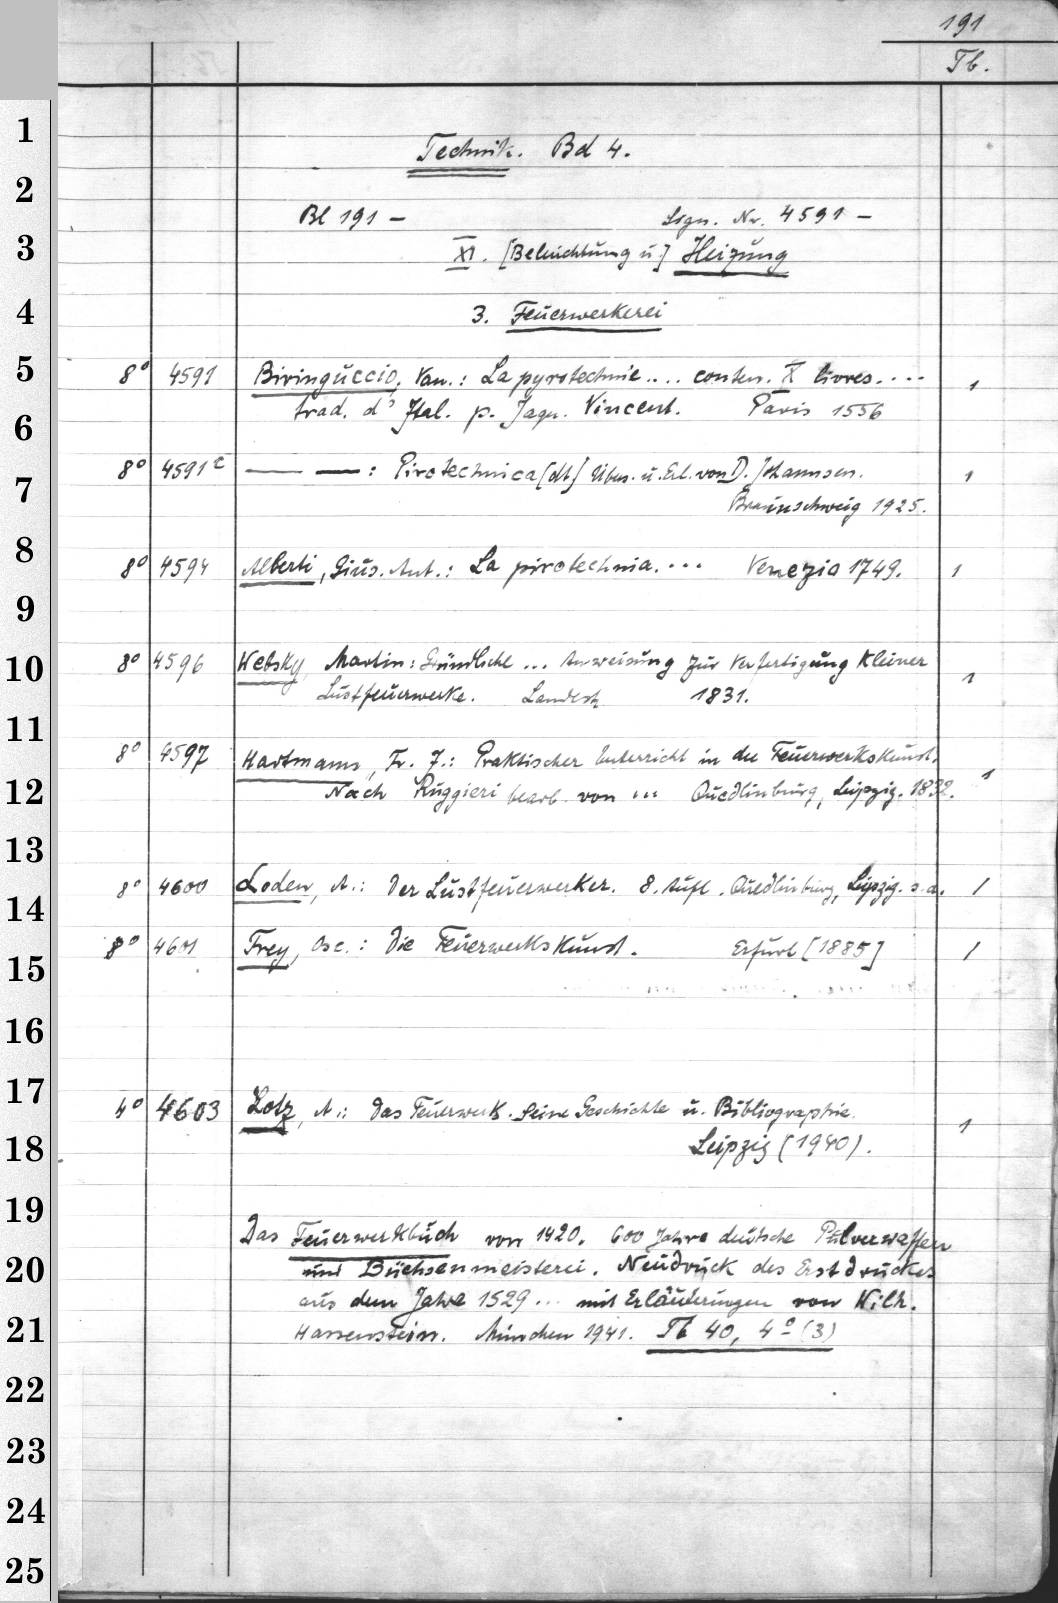 191
Tb.
1
Technik. Bd 4.
2
Bl 191 – Sign. Nr. 4591 –
3
XI. [Beleuchtung u.] Heizung
4
3. Feuerwerkerei
5
8° 4591 Biringuccio, Van.: La pyrotechnie .... conten. X livres. .... 1
6
trad. d' Ital. p. Jaqu. Vincent. Paris 1556
7
8° 4591c — — : Pirotechnica [dt] Übers. u. Erl. von D. Johannsen. 1
Braunschweig 1925.
8
8° 4594 Alberti, Gius. Ant.: La pirotechnia. ... Venezia 1749. 1
9
10
8° 4596 Websky, Martin: Gründliche ... Anweisung zur Verfertigung kleiner 1
Lustfeuerwerke. Landesh 1831.
11
8° 4597 Hartmann, Fr. J.: Praktischer Unterricht in der Feuerwerkskunst.
12
Nach Ruggieri bearb. von ... Quedlinburg, Leipzig. 1832. 1
13
8° 4600 Loden, A.: Der Lustfeuerwerker. 8. Aufl. Quedlinburg, Leipzig. s. a. 1
14
8° 4601 Frey, Osc.: Die Feuerwerkskunst. Erfurt [1885] 1
15
16
17
4° 4603 Lotz, A.: Das Feuerwerk. Seine Geschichte u. Bibliographie. 1
18
Leipzig (1940).
19
Das Feuerwerkbuch von 1420. 600 Jahre deutsche Pulverwaffen
20
und Büchsenmeisterei. Neudruck des Erstdruckes
aus dem Jahre 1529 ... mit Erläuterungen von Wilh.
21
Hassenstein. München 1941. Tb 40, 4° (3)
22
23
24
25